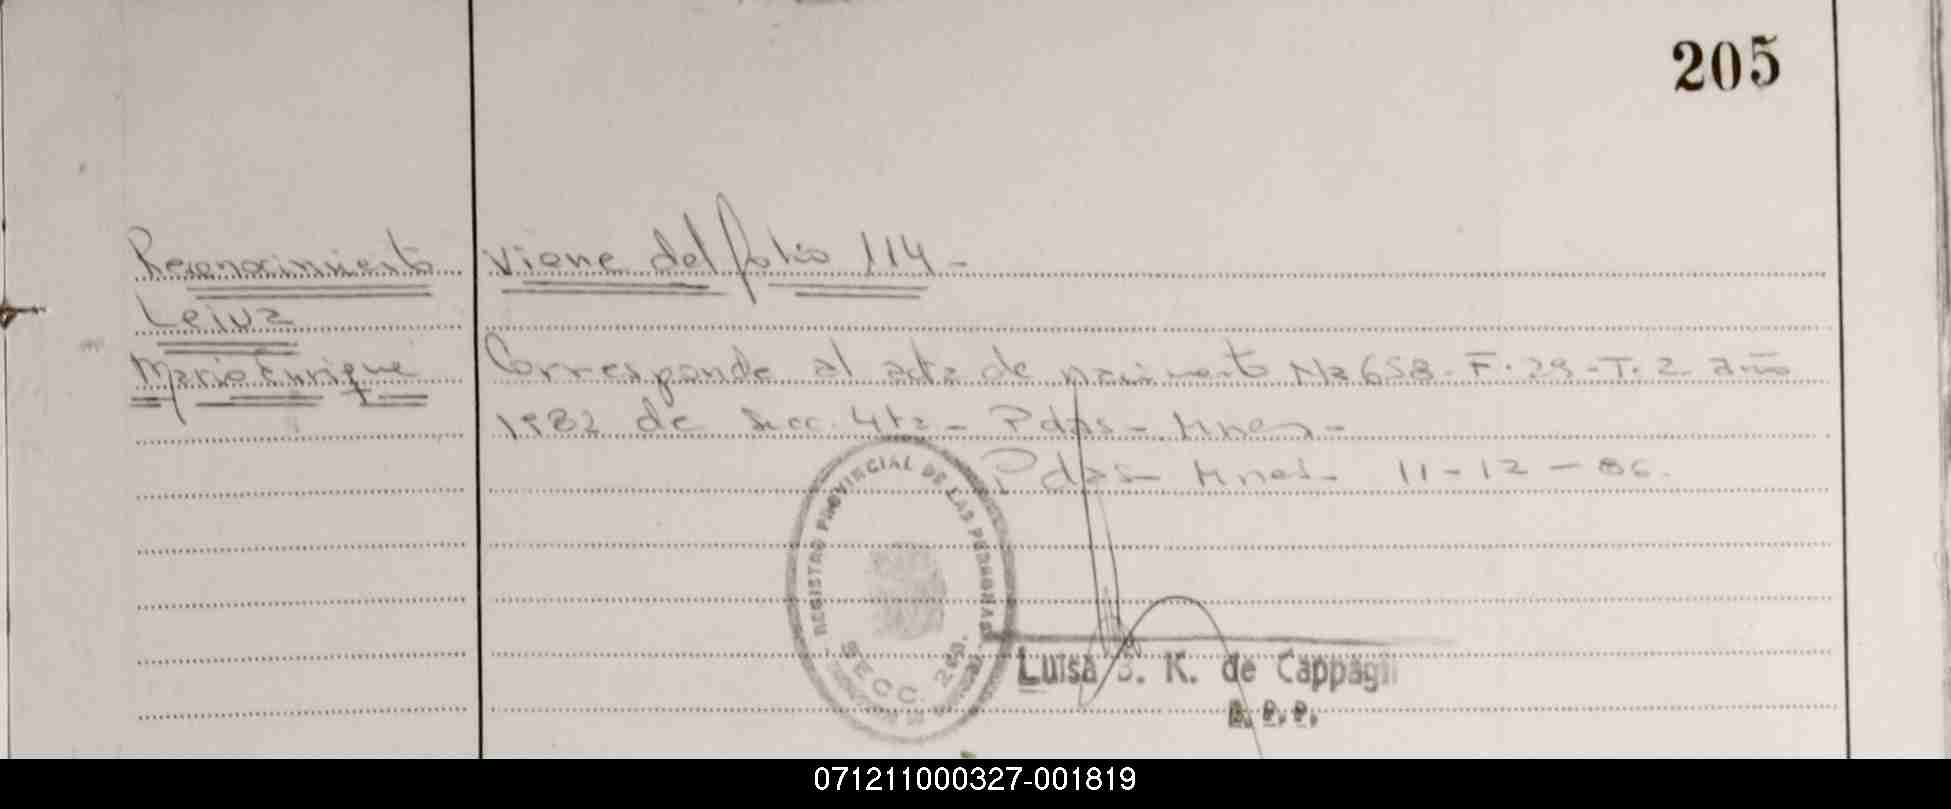 205
Reconocimiento viene del folio 114-
Leiva
Mario Enrique Corresponde al acta de nacimiento No 658- F. 29- T. 2- año
1982 de Secc. 4ta- Pdas- Mnes-
Pdas- Mnes- 11-12-86.
REGISTRO PROVINCIAL DE LAS PERSONAS
SECC. 2
MISIONES
Luisa S. K. de Cappagli
071211000327-001819